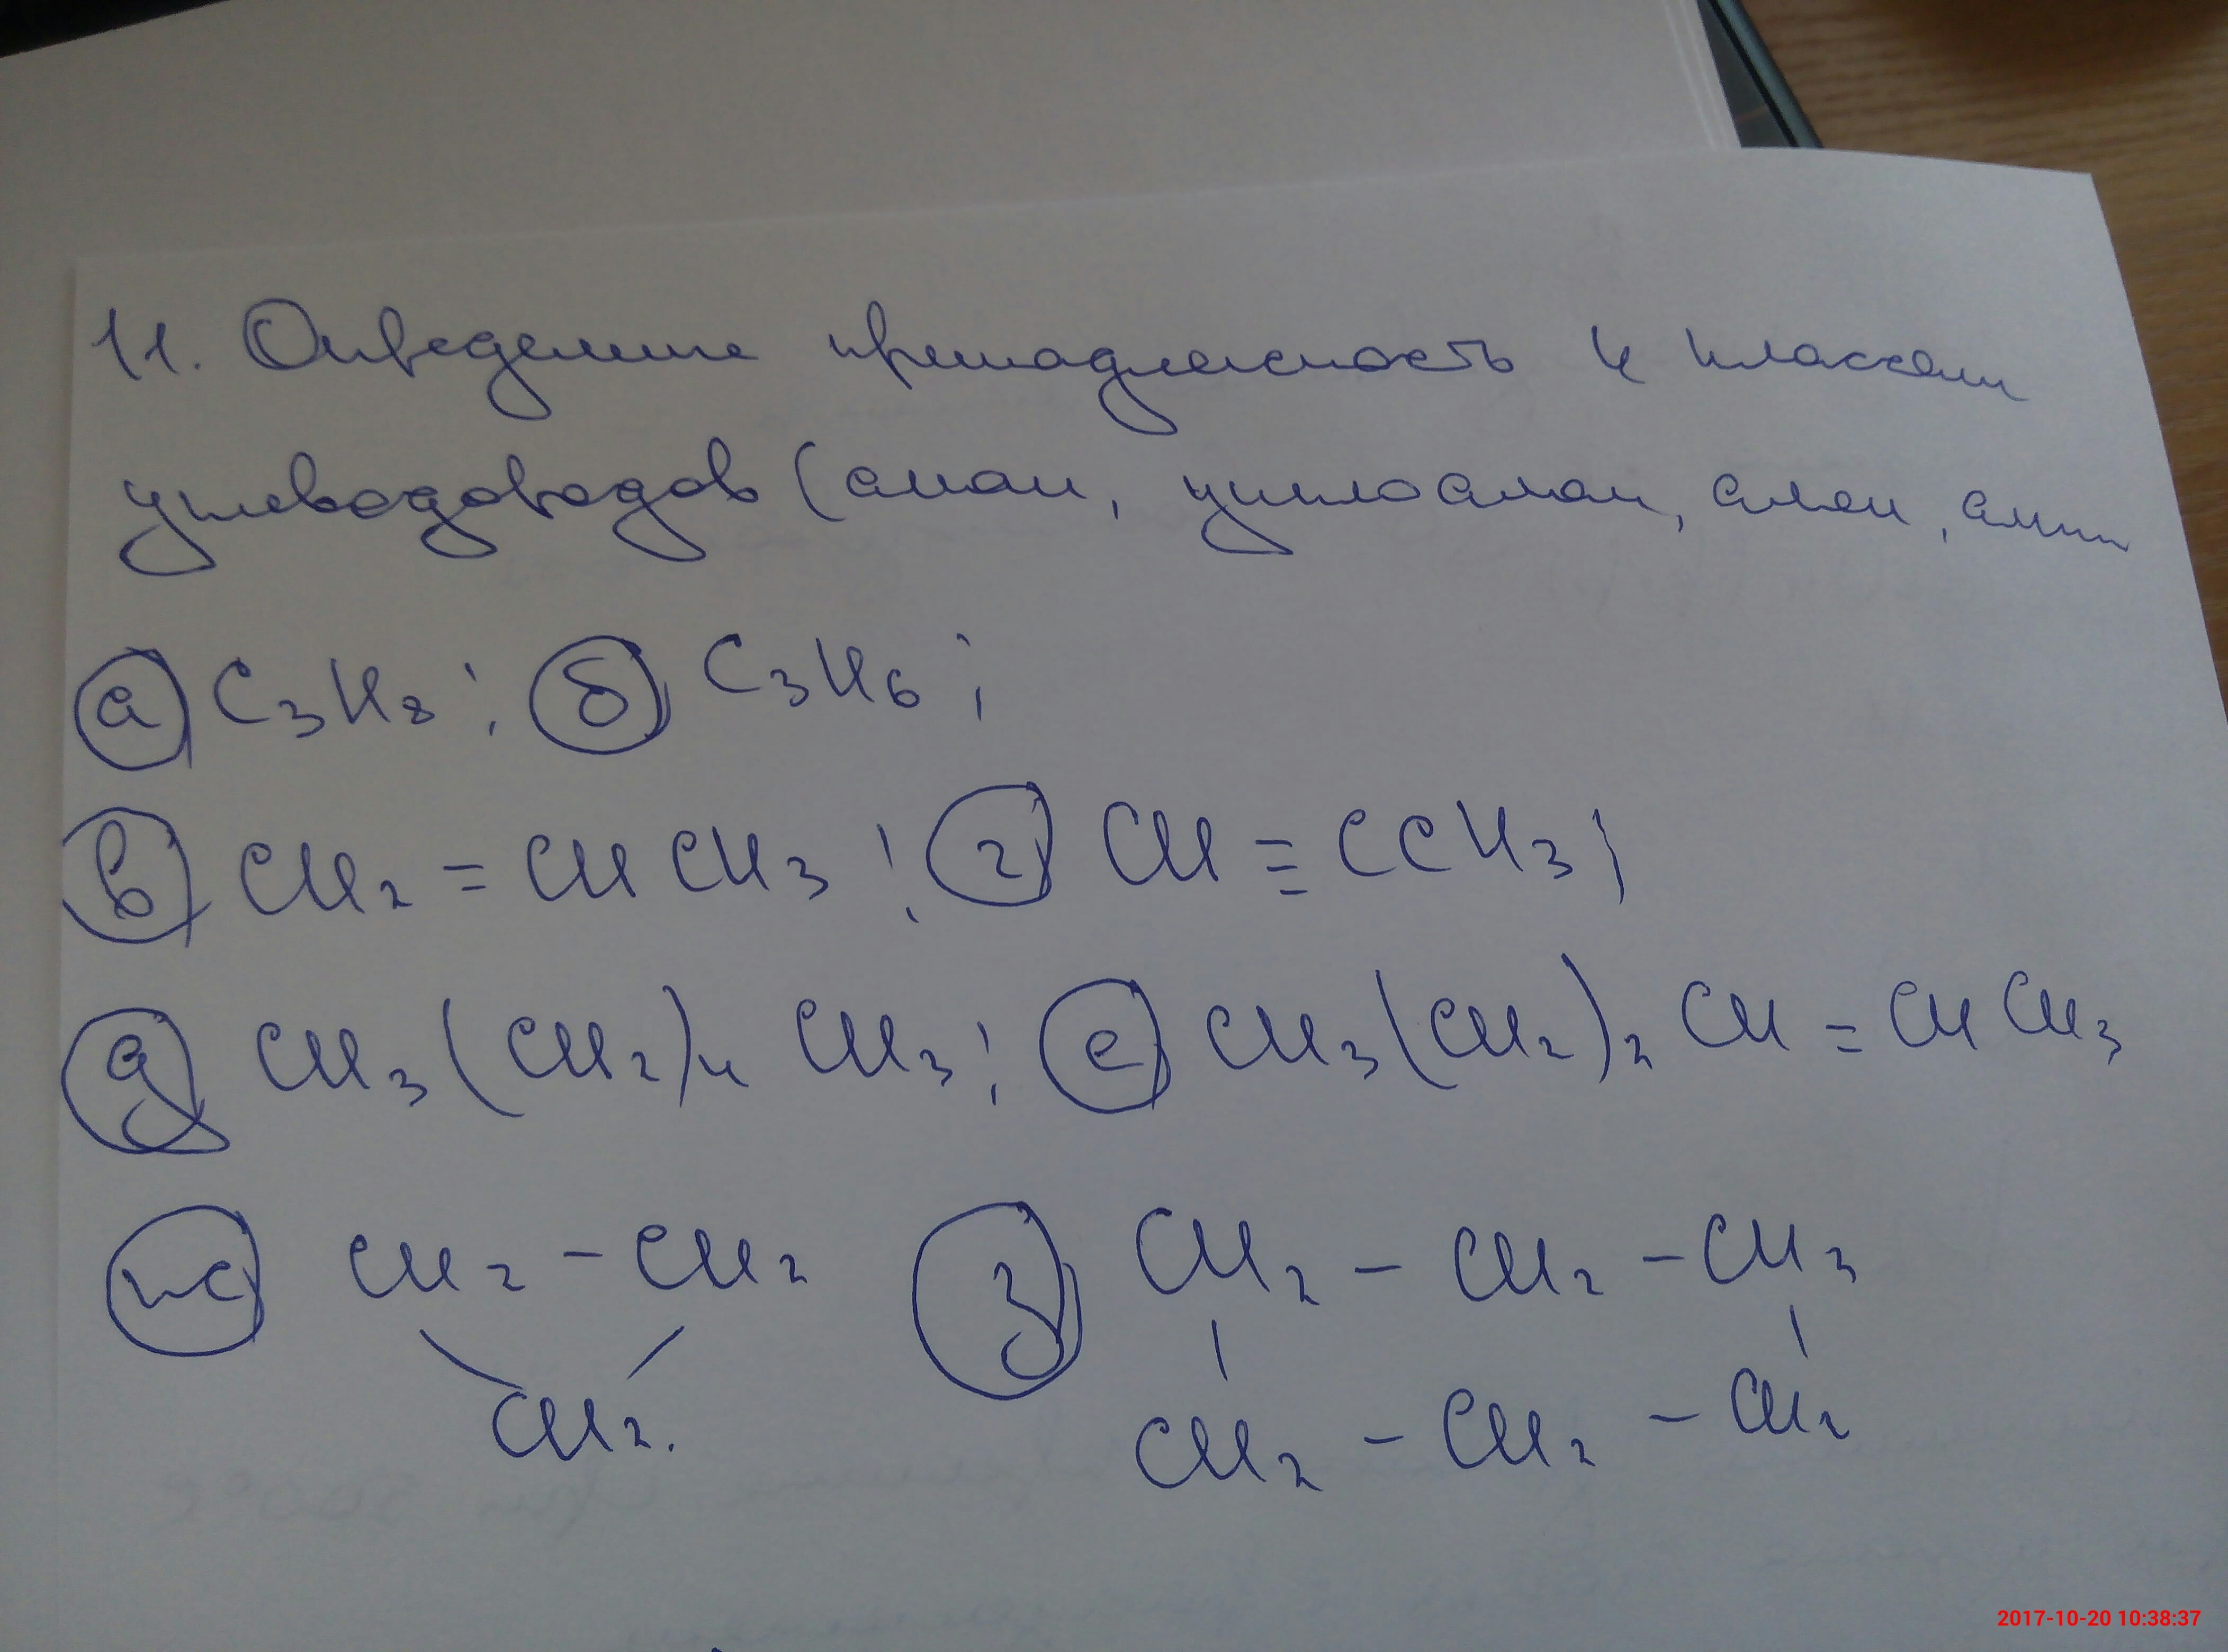 11. Определите принадлежность к классам
углеводородов (алкан, циклоалкан, алкен, алкин
а C₃H₈; б C₃H₆;
в CH₂ = CHCH₃; г CH ≡ CCH₃;
д CH₃(CH₂)₄CH₃; е CH₃(CH₂)₂CH = CHCH₃
ж CH₂ - CH₂ з CH₂ - CH₂ - CH₂
CH₂. CH₂ - CH₂ - CH₂
2017-10-20 10:38:37